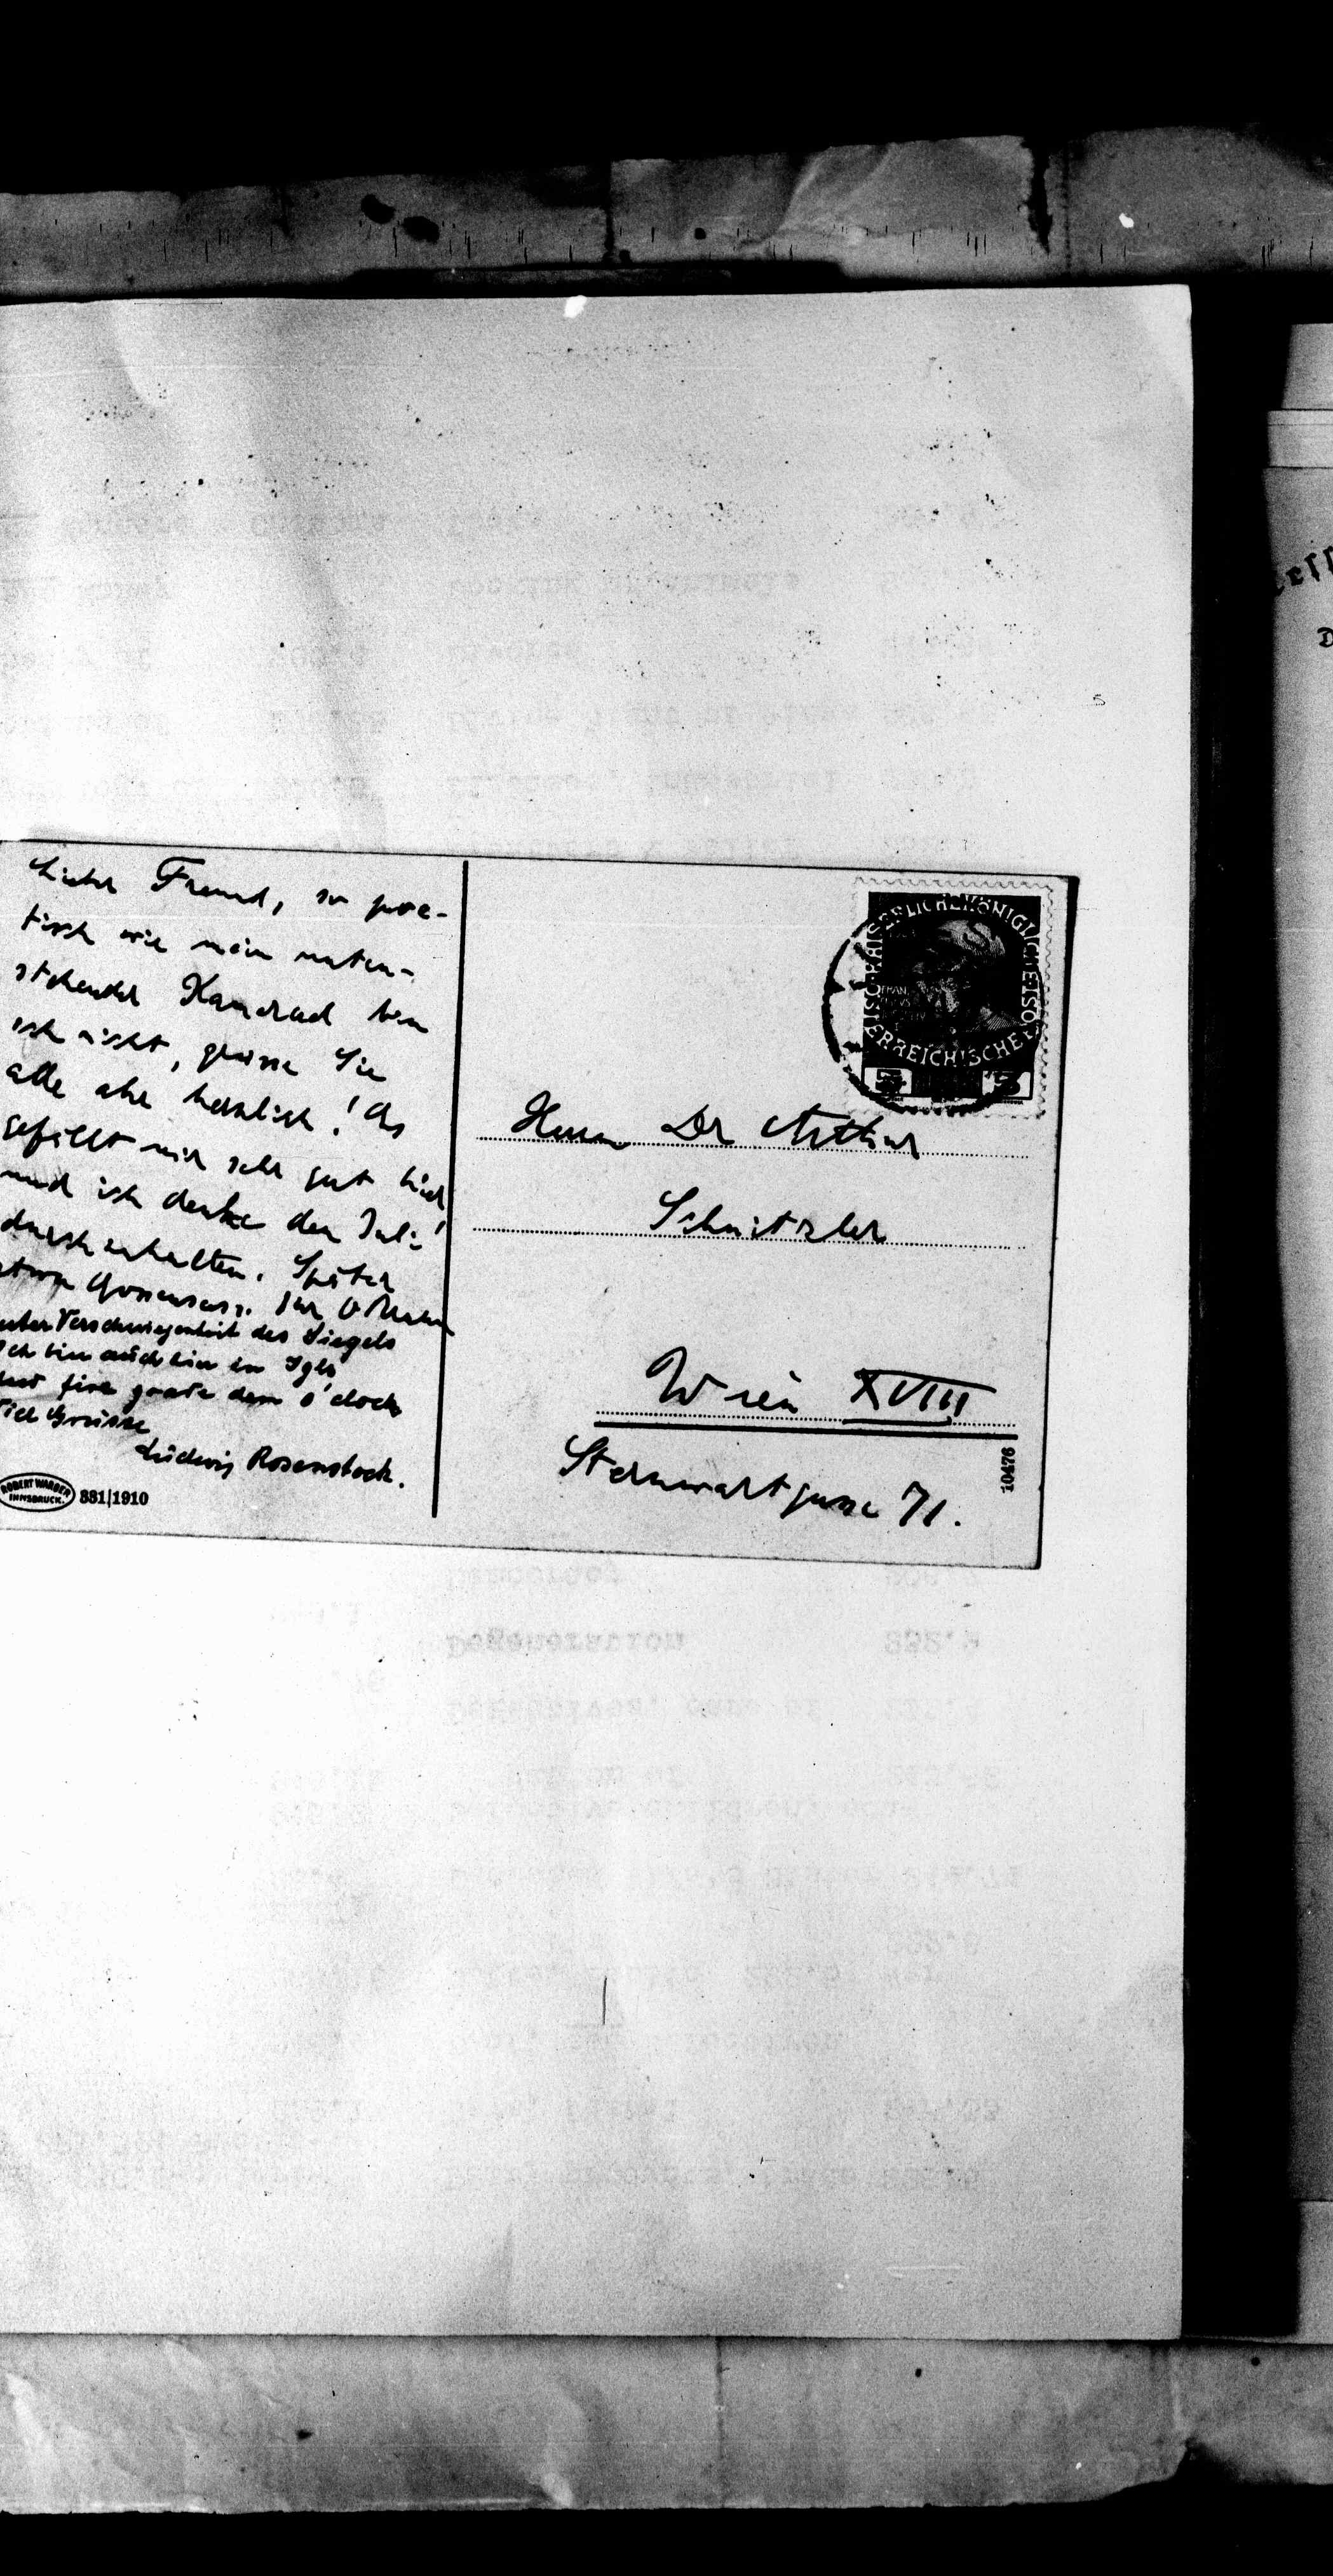 Lieber Freund, so poe-
tisch wie mein unten-
stehender Kamerad bin
ich nicht, grüsse Sie
alle aber herzlich! Es
gefällt mir sehr gut hier
und ich denke den Juli
durchzuhalten. Später
etwa Gossensass. Ihr
unter Verschwiegenheit des Siegels
Ich bin auch hier in Igls
five o'clock
Viel Grüsse
Ludwig Rosenstock.
ROBERT WARGER
INNSBRUCK. 331|1910
KAISERLICHE KÖNIGLICHE ÖSTERREICHISCHE POST
Herrn Dr Arthur
Schnitzler
Wien XVIII
Sternwartgasse 71.
10476